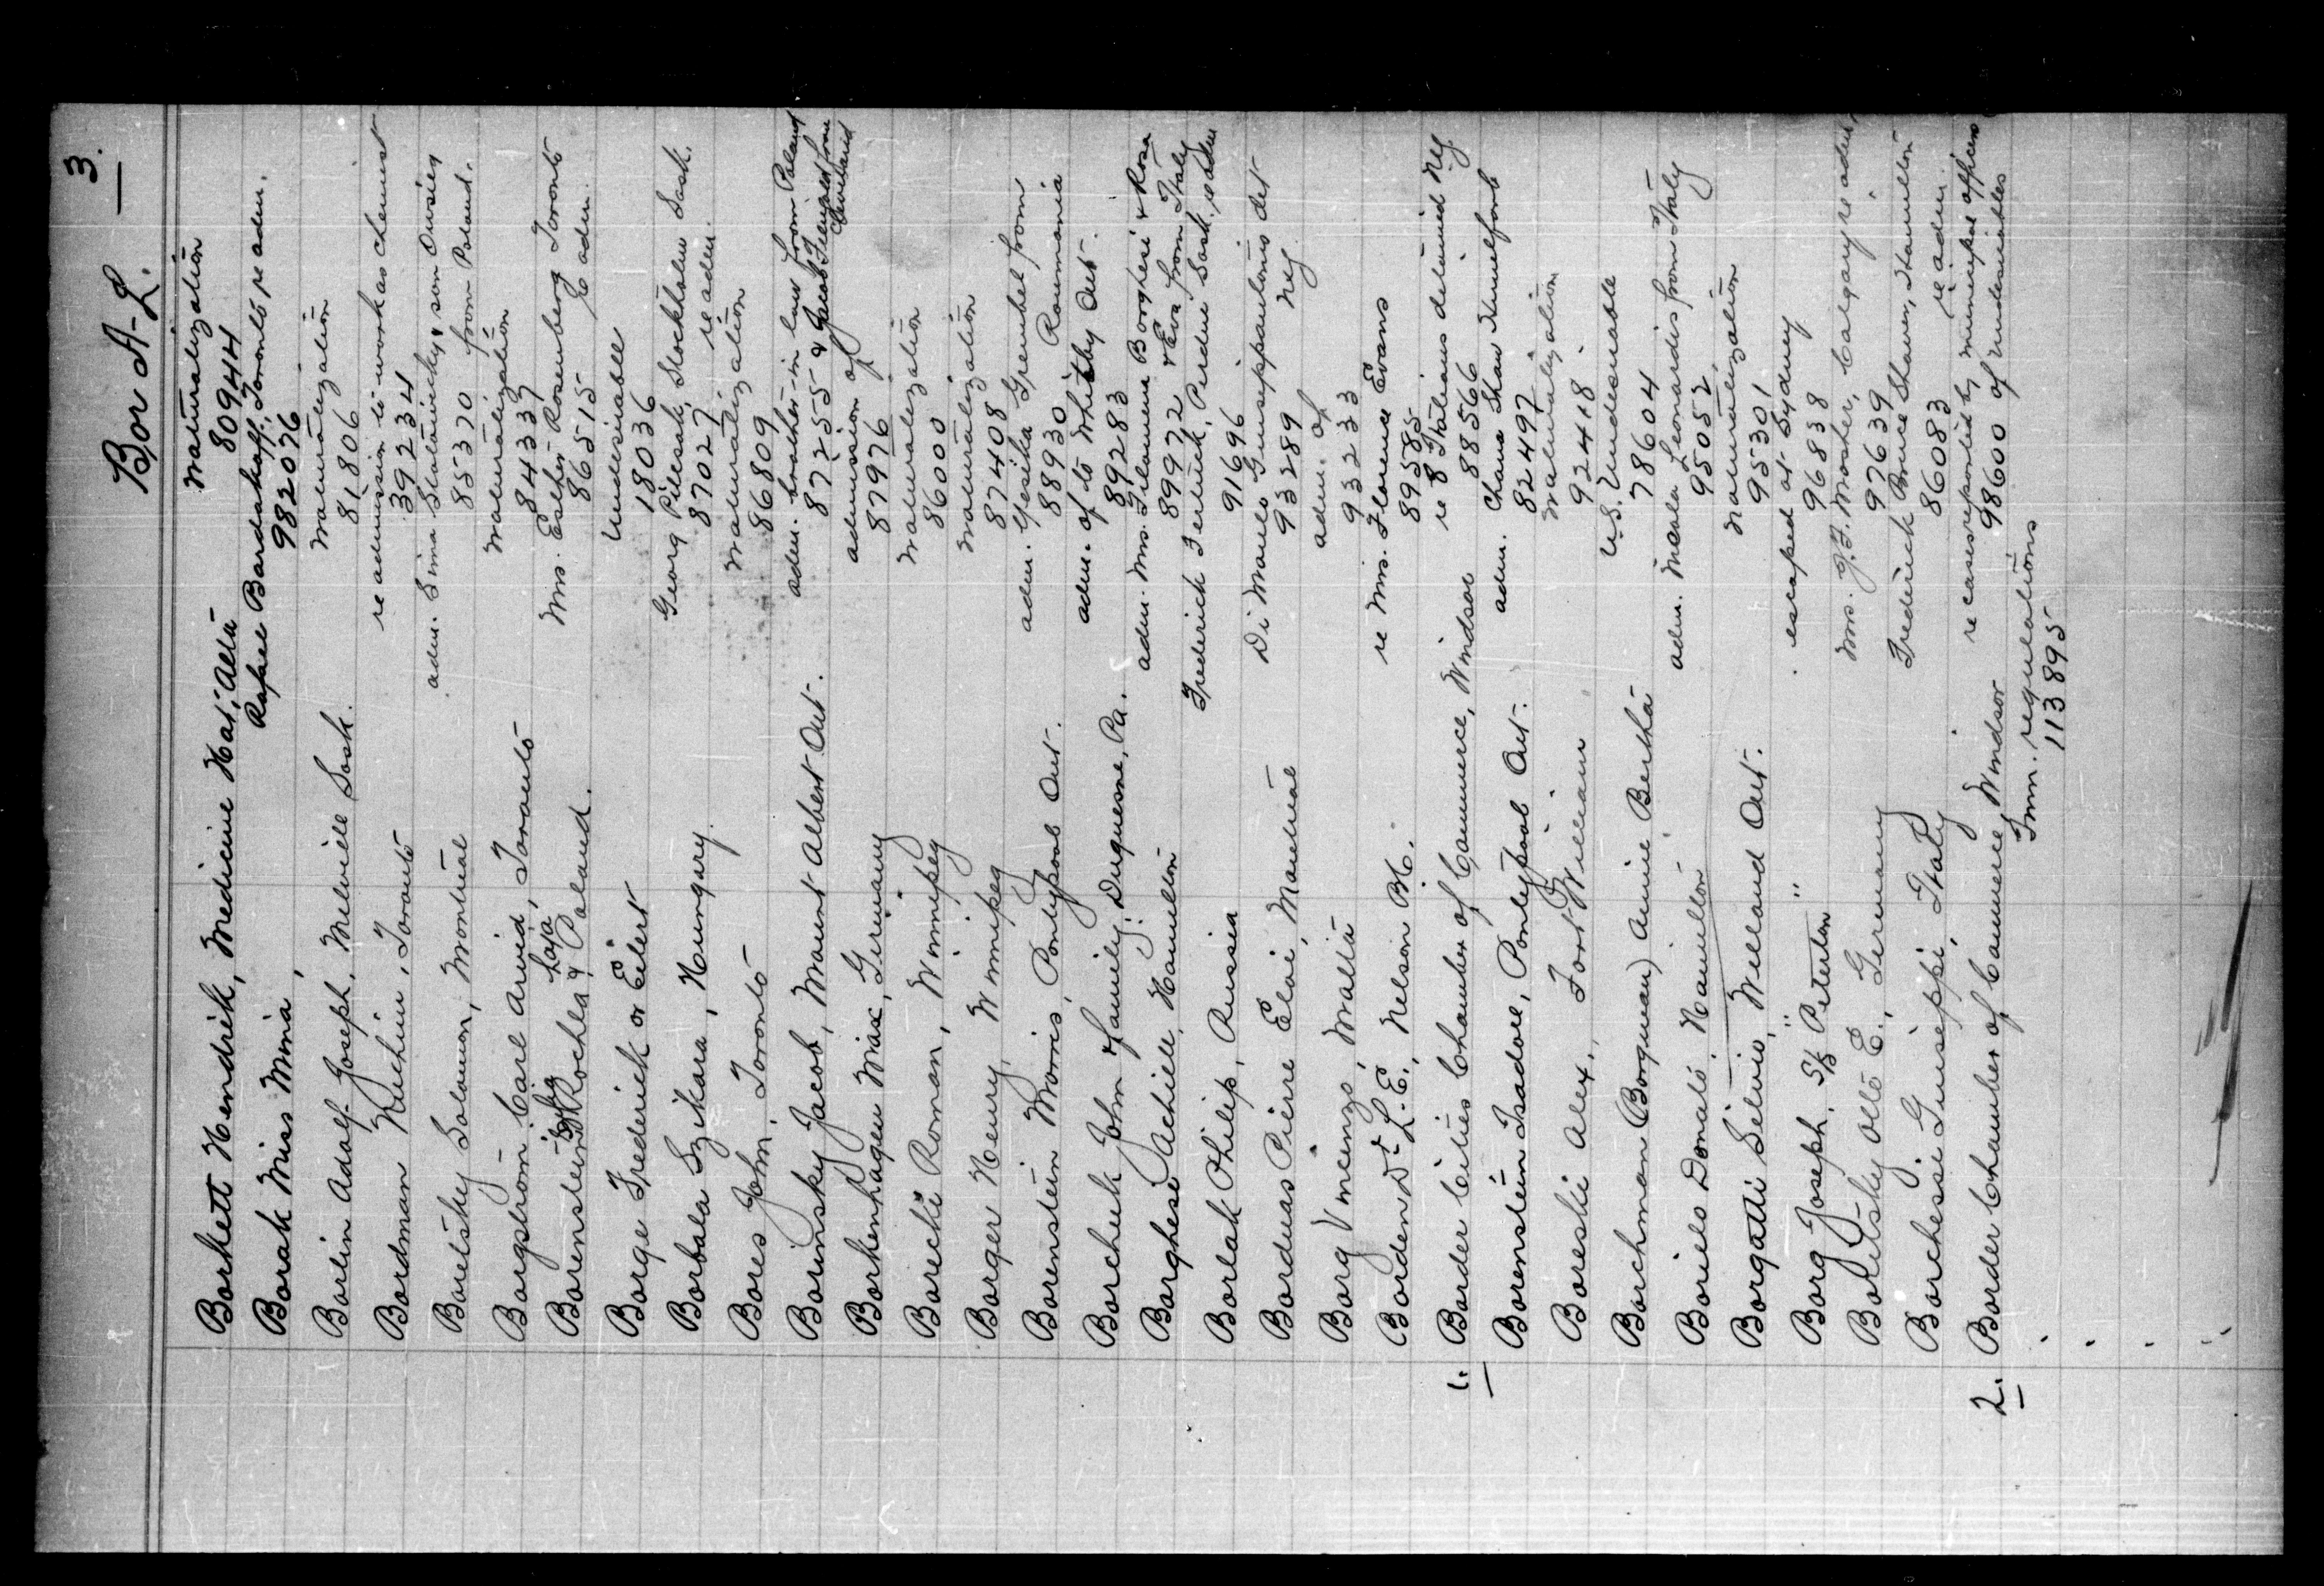 3.
Bor A-L.
Borkett Hendrik, Medicine Hat, Alta naturalization
80944
Borak Miss Mina, Rafael Bardakoff, Toronto re adm.
982076
Borlin Adolf Joseph, Melville Sask. naturalization
81806
Bordman Nuchim, Toronto re admission to work as chemist
39234
Boretsky Solomon, Montreal adm. Sima Slatowicky & son Owsiey
85370 from Poland.
Borgstrom Carl Arvid, Toronto naturalization
84337
Borenstein Rochla & Laja Poland. Mrs. Esther Rosenberg Toronto
86515 re adm.
Borge Frederick or Eilert Undesirable
18036
Borbala Szikara, Hungary Georg Pilesak, Stockholm Sask.
87027 re adm.
Bores John, Toronto naturalization
86809
Borinsky Jacob, Mount Albert Ont. adm. brother-in-law from Poland
87255 & Jacob from Cleveland
Borkenhagen Max, Germany admission of
87976
Borecki Roman, Winnipeg naturalization
86000
Borger Henry, Winnipeg naturalization
87408
Borenstein Morris, Pontypool Ont. adm. Yesika Grembel from
88930 Roumania
Borchuk John & family, Duquesne, Pa. adm. of to Whitby Ont.
89283
Borghese Achille, Hamilton adm. Mrs. Filamena Borghesi & Rosa
89972 & Eva from Italy
Borlak Philip, Russia Frederick Perdue Sask. re adm
91696
Borduas Pierre Eloi, Montreal Di Maulo Guiseppantonio det
93289 Ney
Borg Vincenzo, Malta adm. of
93233
Borden Dr L. E., Nelson B.C. re Mrs. Florence Evans
89585
1. Border Cities Chamber of Commerce, Windsor re 8 Italians detained Ney
88566
Borenstein Isadore, Pontypool Ont. adm. Chana Shaw Himelfarb
82497
Boreski Alex., Fort William naturalization
92418
Borchman (Borgman) Annie Bertha U.S. Undesirable
78604
Borielo Donato, Hamilton adm. Micala Leonardis from Italy
95052
Borgatti Silvio, Welland Ont. naturalization
95301
Borg Joseph, S/S "Peterton" escaped at Sydney
96838
Boretsky Otto E., Germany Mrs. G.F. Mosher, Calgary re adm,
97639
Borchessi Guiseppi, Italy Frederick Bruce Shaver, Hamilton
86083 re adm.
2. Border Chamber of Commerce, Windsor re cases reported by municipal officers
98600 of undesirables
Imm. regulations
113895